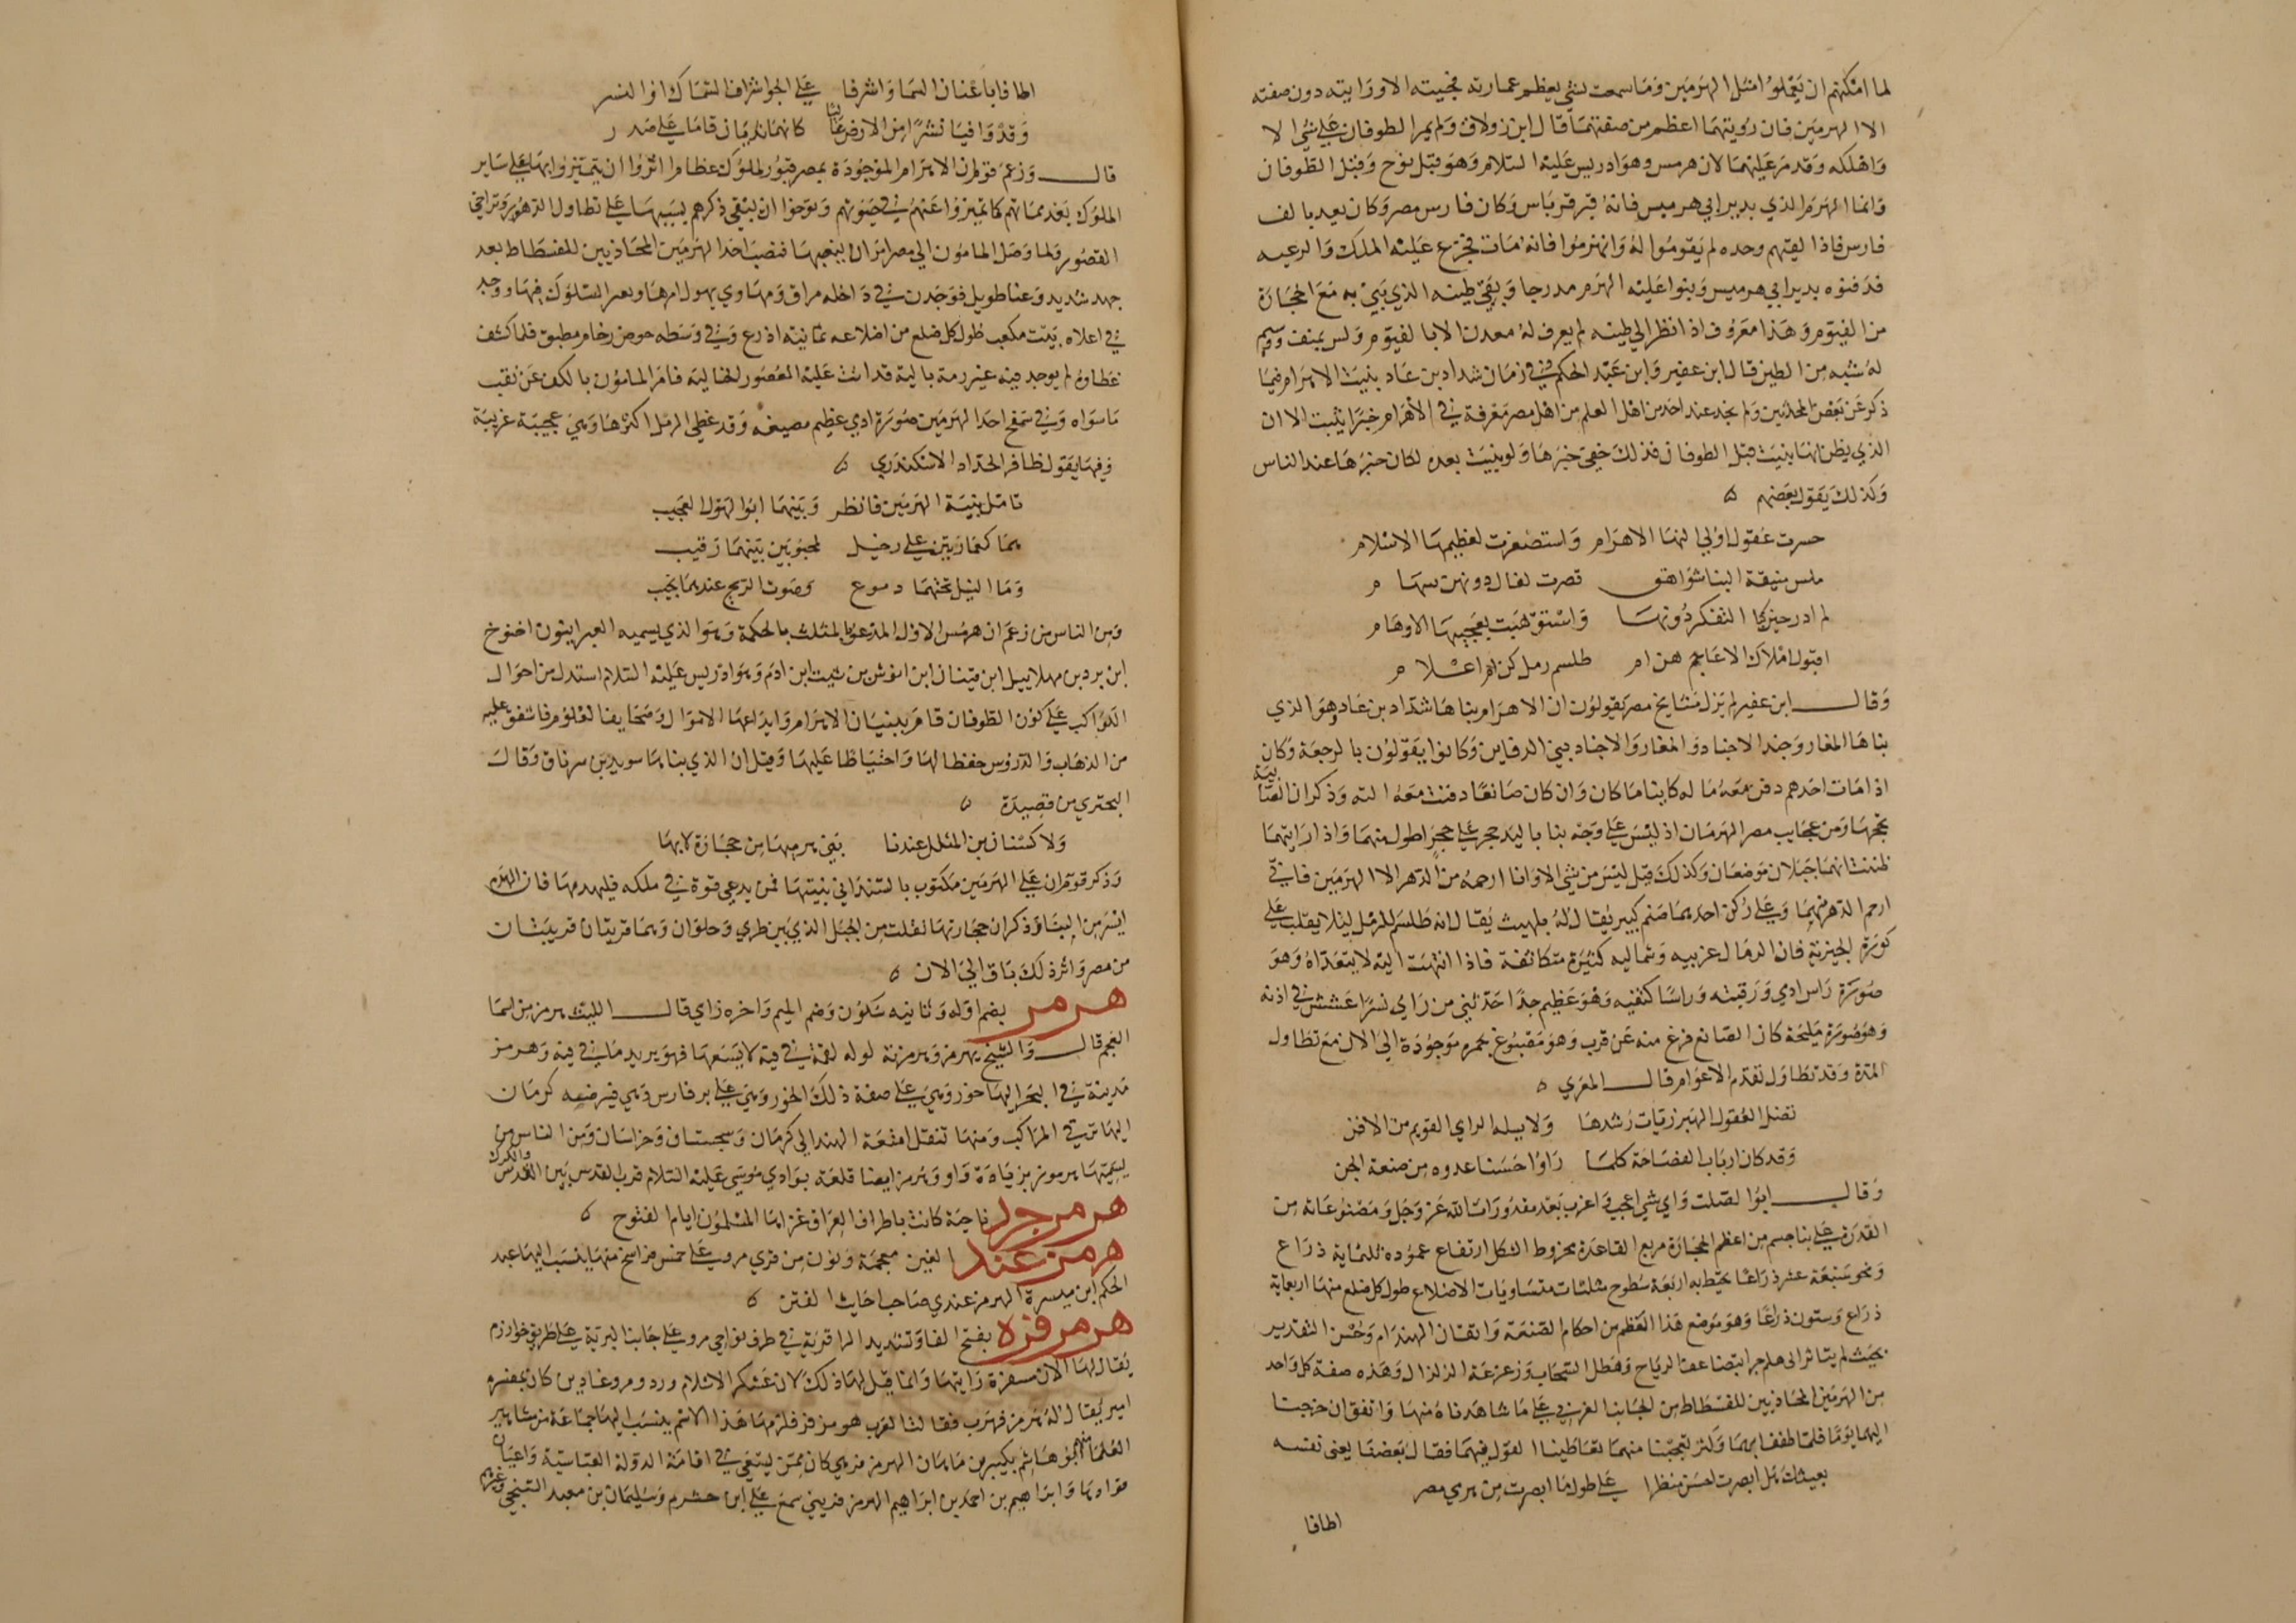 لما امكنهم ان يعملوا مثل الهرمين وما سمعت بشي يعظم عمارته فجيته الا ورايته دون صفته
الا الهرمين فان رؤيتهما اعظم من صفتهما قال ابن زولاق ولم يمر الطوفان على شي الا
واهلكه وقد مر عليهما لان هرمس وهو ادريس عليه السلام وهو قبل نوح وقبل الطوفان
وانما الهرم الذي بدير ابي هرميس فانه قبر قرياس وكان فارس مصر وكان يعد بالف
فارس فاذا لقيهم وحده لم يقوموا له وانهزموا فانه مات فجزع عليه الملك والرعيه
فدفنوه بدير ابي هرميس وبنوا عليه الهرم مدرجا وبقي طينه الذي بني به مع الحجارة
من الفيوم وهذا معروف اذا نظر الى طينه لم يعرف له معدن الا بالفيوم وليس بمنف ووسيم
له شبه من الطين قال ابن عفير وابن عبد الحكم وفي زمان شداد بن عاد بنيت الاهرام فيما
ذكر عن بعض المحدثين ولم نجد عند احد من اهل العلم من اهل مصر معرفة في الاهرام خبرا يثبت الا ان
الذي يظن انها بنيت قبل الطوفان فذلك خفي خبرها ولو بنيت بعده لكان خبرها عند الناس
وكذلك يقول بعضهم ه
حسرت عقول اولي النهى الاهرام واستصغرت لعظيمها الاسلام
ملس منيفة البنا شواهق قصرت لعال دونهن سهام
لم ادر حين كبا التفكر دونها واستوهبت بعجيبها الاوهام
اقبول املاك الاعاجم هن ام طلسم رمل كن ام اعلام
وقال ابن عفير لم يزل مشايخ مصر يقولون ان الاهرام بناها شداد بن عاد وهو الذي
بنا ها المغار وجند الاجناد والمغار والاجناد هي الدفاين وكانوا يقولون بالرجعة وكان
اذا مات احدهم دفن معه ماله كاينا ما كان وان كان صانعا دفنت معه الته وذكر ان الصابية
تحجها ومن عجايب مصر الهرمان اذ ليس على وجه بنا باليد حجر على حجر اطول منهما واذا رايتهما
ظننت انهما جبلان موضعان وكذلك قيل ليس من شي الا وانا ارحمه من الدهر الا الهرمين فاني
ارحم الدهر منهما وعلى ركن احدهما صنم كبير يقال له بلهيت يقال انه طلسم للرمل ليلا يغلب على
كورة الجيزة فان الرمال غربيه وشماليه كثيرة متكاثفة فاذا انتهت اليه لا يتعداه وهو
صورة راس ادمي ورقبته وراسا كتفيه وهو عظيم جدا حدثني من راي نسرا عشش في اذنه
وهو صورة مليحة كان الصانع فرغ منه عن قرب وهو مصبوغ بحمرة موجودة الى الان مع تطاول
المدة وقد تطاول تقدم الاعوام قال المعري ه
تضل العقول الهبرزيات رشدها ولا يسلم الراي القويم من الافن
وقد كان ارباب الفصاحة كلما راوا حسنا عدوه من صنعة الجن
وقال ابوا الصلت واي شي اعجب واغرب بعد مقدورات الله عز وجل ومصنوعاته من
القدرة على بنا جسم من اعظم الحجارة مربع القاعدة مخروط الشكل ارتفاع عموده ثلثماية ذراع
ونحو سبعة عشر ذراعا يحيط به اربعة سطوح مثلثات متساويات الاضلاع طول كل ضلع منها اربعماية
ذراع وستون ذراعا وهو موضع هذا العظم من احكام الصنعة واتقان الهندام وحسن التقدير
بحيث لم يتاثر الى هلم جرا بتضاعف الرياح وهطل السحاب وزعزعة الزلزال وهذه صفة كل واحد
من الهرمين المحاذيين للفسطاط من الجانب الغربي على ما شاهدناه منهما واتفق ان خرجنا
اليهما يوما فلما طفنا بهما وكثر تعجبنا منهما تعاطينا القول فيهما فقال بعضنا يعني نفسه
بعيشك هل ابصرت احسن منظرا على طول ما ابصرت من هرمي مصر
اطافا
اطافا باعنان السما واشرفا على الجو اشراف السماك او النسر
وقد وافيا نشزا من الارض عاليا كانهما نديمان قاما على صدر
قال وزعم قوم ان الاهرام الموجودة بمصر قبور لملوك عظام اثروا ان يتميزوا بها على ساير
الملوك بعد مماتهم كما تميزوا عنهم في حيوتهم وتوخوا ان يبقى ذكرهم بسببها على تطاول الدهور وتراخي
العصور ولما وصل المامون الى مصر امر ان بنقبها فنقب احد الهرمين المحاذيين للفسطاط بعد
جهد شديد وعنا طويل فوجد في داخله مراق ومهاوي يهول امرها ويعسر السلوك فيها ووجد
في اعلاه بيت مكعب طول كل ضلع من اضلاعه ثمانية اذرع وفي وسطه حوض رخام مطبق فلما كشف
غطاوه لم يوجد فيه غير رمة بالية قد اتت عليه العصور الخالية فامر المامون بالكف عن نقب
ما سواه وفي سفح احد الهرمين صورة ادمي عظيم مصبغه وقد غطى الرمل اكثرها وهي عجيبة غريبة
وفيها يقول ظافر الحداد الاسكندري ه
تامل بنية الهرمين فانظر وبينهما ابوا الهول العجيب
بما كعماريتين على رحيل لمحبوبين بينهما رقيب
وما النيل تحتهما دموع وصوت الريح عندهما نحيب
ومن الناس من زعم ان هرمس الاول المدعو بالمثلث بالحكمة وهو الذي يسميه العبرانيون اخنوخ
ابن يرد بن مهلاييل ابن قينان ابن انوش بن شيث ابن ادم وهو ادريس عليه السلام استدل من احوال
الكواكب على كون الطوفان قامر ببنيان الاهرام وايداعها الاموال وصحايف العلوم فاشفق عليه
من الذهاب والدروس حفظا لها واحتياطا عليها وقيل ان الذي بناها سوريد بن سرناق وقال
البحتري من قصيدة ه
ولا كسنان بن المشلل عندنا بنى هرميها من حجارة لابها
وذكر قوم ان على الهرمين مكتوب بالمسند اني بنيتهما فمن يدعي قوة في ملكه فليهدمهما فان الهدم
ايسر من البنا وذكر ان حجارتهما نقلت من الجبل الذي بين طرى وحلوان وهما قريتان قريبتان
من مصر واثر ذلك باق الى الان ه
هرمز بضم اوله وثانيه سكون وضم الميم واخره زاي قال الليث هرمز من اسما
العجم قال والشيخ يهرمز وهرمزته لوكه لقمة في فيه لا يسعها فهو يريد ما في فيه وهرمز
مدينة في البحر اليها خور وهي على صفة ذلك الخور وهي على بر فارس وهي فرضه كرمان
اليها ترقي المراكب ومنها تنقل امتعة الهند الى كرمان وسجستان وخراسان ومن الناس من
يسميها هرموز بزيادة واو وهرمز ايضا قلعة بوادي موسى عليه السلام قرب القدس بين القدس والكرك
هرمزجرد ناحية كانت باطراف العراق غزاها المسلمون ايام الفتوح ه
هرمز غند الغين معجمة ونون من قري مرو على خمس فراسخ منها ينسب اليها عبد
الحكم ابن ميسرة الهرمزغندي صاحب احاديث الفتن ه
هرمزفره بفتح الفا وتشديد الرا قرية في طرف نواحي مرو على جانب البرية على طريق خوارزم
يقال لها الان مسفرة رايتها وانما قيل لها ذلك لان عسكر الاسلام وردو مرو غازين كان بمفره
امير يقال له هرمز فهرب فقالت العرب هرمز فر فلزمها هذا الاسم ينسب اليها جماعة من مشاهير
العلما منهم ابو هاشم بكير بن ماهان الهرمزفرهي كان ممن يسعى في اقامة الدولة العباسية واعيان
قوادها وابراهيم بن احمد بن ابراهيم الهرمزفرهي سمع على ابن خشرم وسليمان بن معبد السنجي وغيرهم